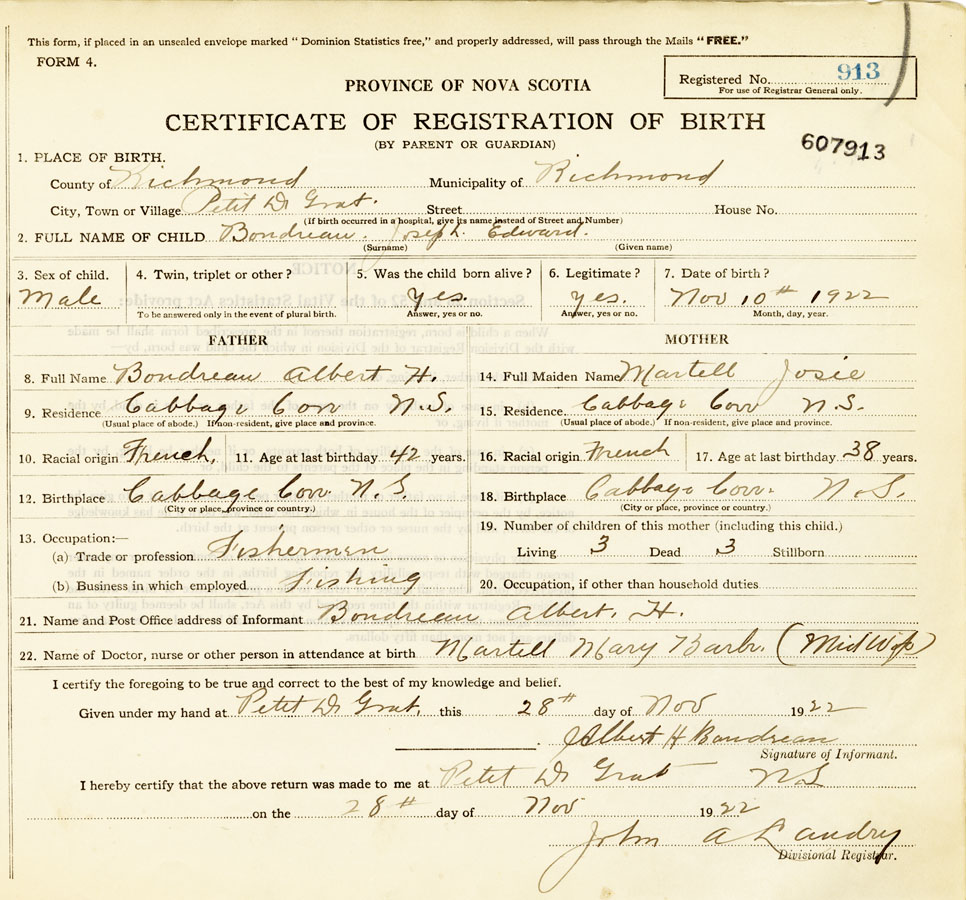 This form, if placed in an unsealed envelope marked “ Dominion Statistics free,” and properly addressed, will pass through the Mails “FREE.”
FORM 4.
Registered No. 913
For use of Registrar General only.
PROVINCE OF NOVA SCOTIA
CERTIFICATE OF REGISTRATION OF BIRTH
(BY PARENT OR GUARDIAN)
607913
1. PLACE OF BIRTH.
County of Richmond Municipality of Richmond
City, Town or Village Petit D Grat. Street House No.
(If birth occurred in a hospital, give its name instead of Street and Number)
2. FULL NAME OF CHILD Boudreau. Joseph. Edward.
(Surname) (Given name)
3. Sex of child. 4. Twin, triplet or other? 5. Was the child born alive? 6. Legitimate? 7. Date of birth?
Male yes. yes. Nov 10th 1922
To be answered only in the event of plural birth. Answer, yes or no. Answer, yes or no. Month, day, year.
FATHER MOTHER
8. Full Name Boudreau Albert H. 14. Full Maiden Name Martell Josie
9. Residence Cabbage Cove N.S. 15. Residence. Cabbage Cove N.S.
(Usual place of abode.) If non-resident, give place and province. (Usual place of abode.) If non-resident, give place and province.
10. Racial origin French, 11. Age at last birthday 42 years. 16. Racial origin French 17. Age at last birthday 38 years.
12. Birthplace Cabbage Cove N.S. 18. Birthplace Cabbage Cove. N.S.
(City or place, province or country.) (City or place, province or country.)
13. Occupation:— 19. Number of children of this mother (including this child.)
(a) Trade or profession Fishermen Living 3 Dead 3 Stillborn
(b) Business in which employed Fishing 20. Occupation, if other than household duties
21. Name and Post Office address of Informant Boudreau Albert. H.
22. Name of Doctor, nurse or other person in attendance at birth Martell Mary Barbr. (MidWife)
I certify the foregoing to be true and correct to the best of my knowledge and belief.
Given under my hand at Petit D Grat. this 28th day of Nov 1922
Albert H Boudreau
Signature of Informant.
I hereby certify that the above return was made to me at Petit D Grat N.S
on the 28th day of Nov 1922
John A Landry
Divisional Registrar.